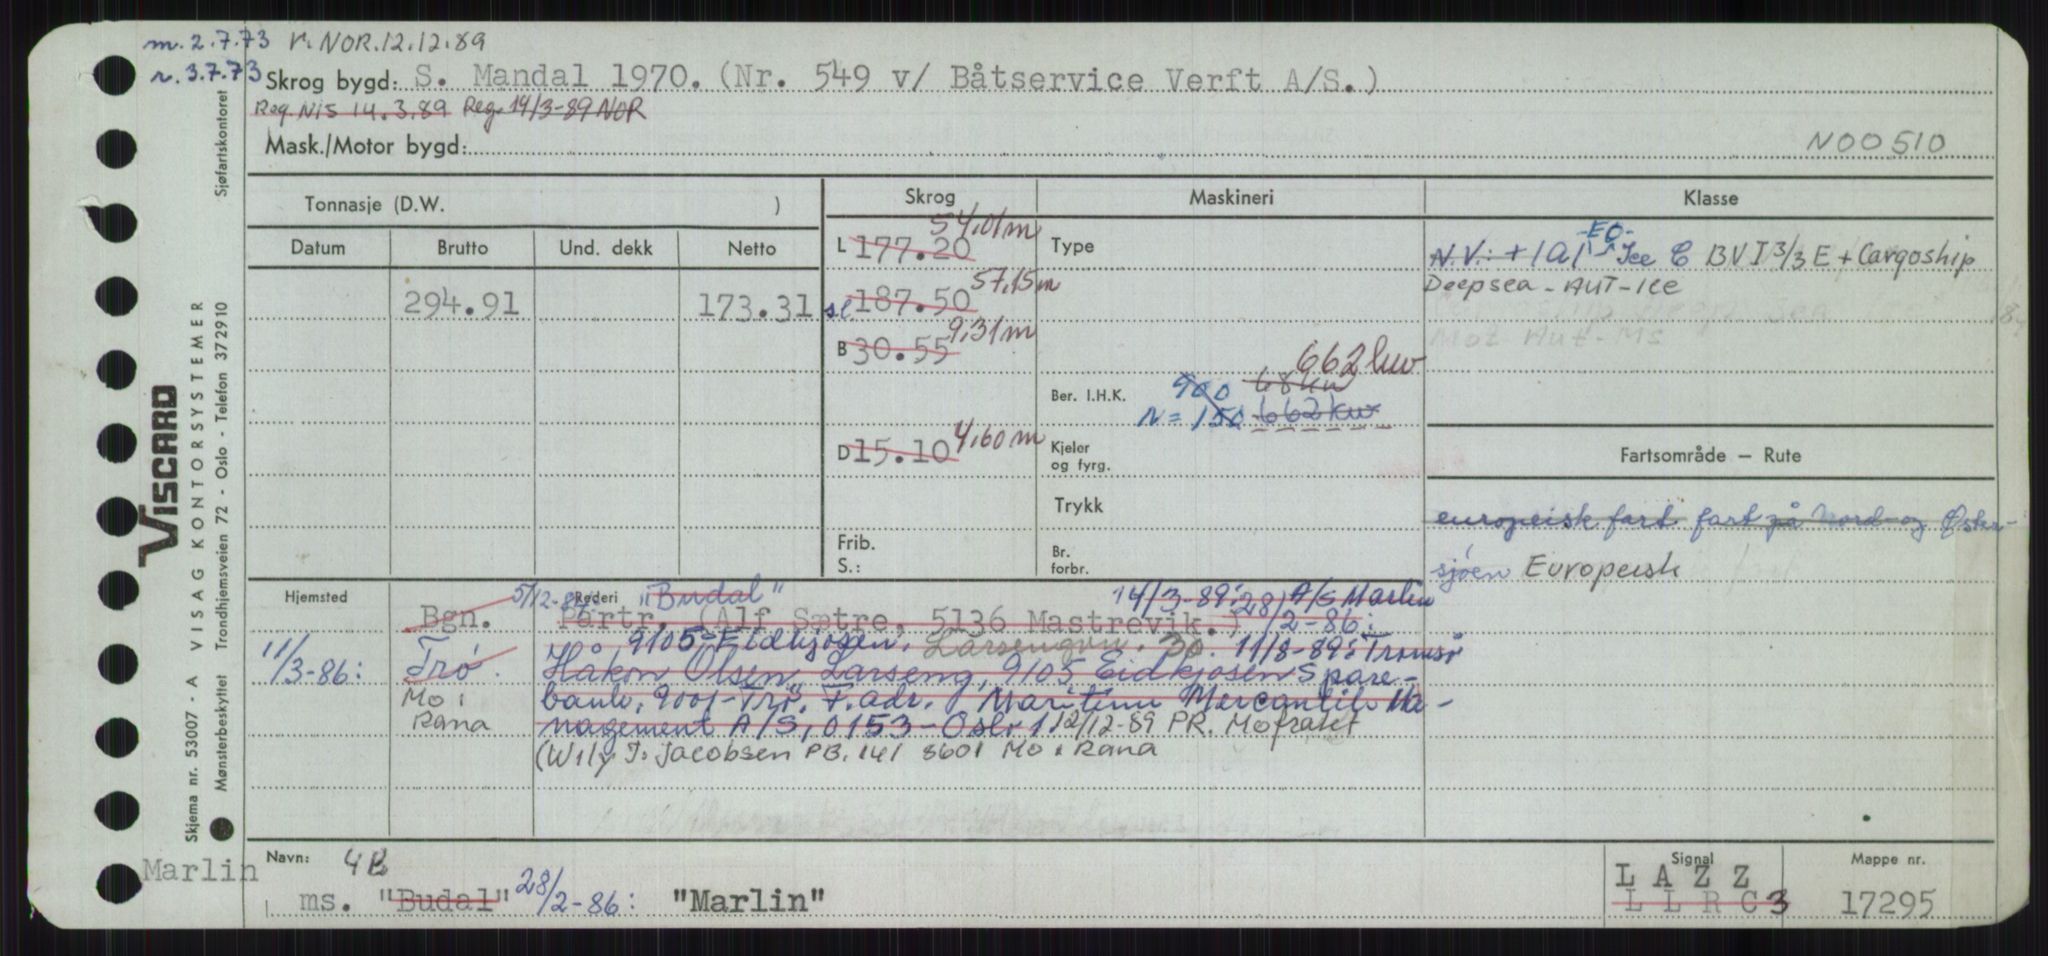 m. 2.7.73 r. NOR.12.12.89
r. 3.7.73 Skrog bygd: S. Mandal 1970. (Nr. 549 v/ Båtservice Verft A/S.)
Reg. NIS 14.3.89 Reg. 14/3-89 NOR
Mask./Motor bygd: N00510
Tonnasje (D.W. ) Skrog Maskineri Klasse
Datum Brutto Und. dekk Netto
L 177.20 54,01m Type
-EO-
N.V.: + 1A1 Ice C BVI 3/3 E + Cargoship
Deepsea - AUT-ICE
294.91 173.31 sl 187.50 57,15m
Mot Aut-Ms
B 30.55 9,31m
662 kw
Ber. I.H.K. 900 68 kw
N = 150 662 kw
D 15.10 4,60 m Kjeler og fyrg.
Fartsområde — Rute
Trykk
europeisk fart fart på Nord-og Øster-
sjøen Europeisk
Frib.
S.:
Br. forbr.
Hjemsted Rederi
5/12-84: "Budal" 14/3-89: A/S Marlin
Bgn. Partr. (Alf Sætre, 5136 Mastrevik.) 28/2-86:
9105-Eidkjosen. Larsengvn. 30. 11/8-89: Tromsø
11/3-86: Trø. Håkon Olsen, Larseng, 9105 Eidkjosen Spare-
Mo i bank, 9001-Trø. F.adr. Maritim Mercantile Ma-
Rana nagement A/S, 0153-Oslo 1. 12/12-89 PR. Mofrakt
(Wily J. Jacobsen PB. 141 8601 Mo i Rana
Marlin Navn: 4B Signal Mappe nr.
L A Z Z
ms. "Budal" 28/2-86: "Marlin" L L R C 3 17295
VISCARD
VISAG KONTORSYSTEMER
Skjema nr. 53007 - A
Trondhjemsveien 72 - Oslo - Telefon 372910
Mønsterbeskyttet
Sjøfartskontoret